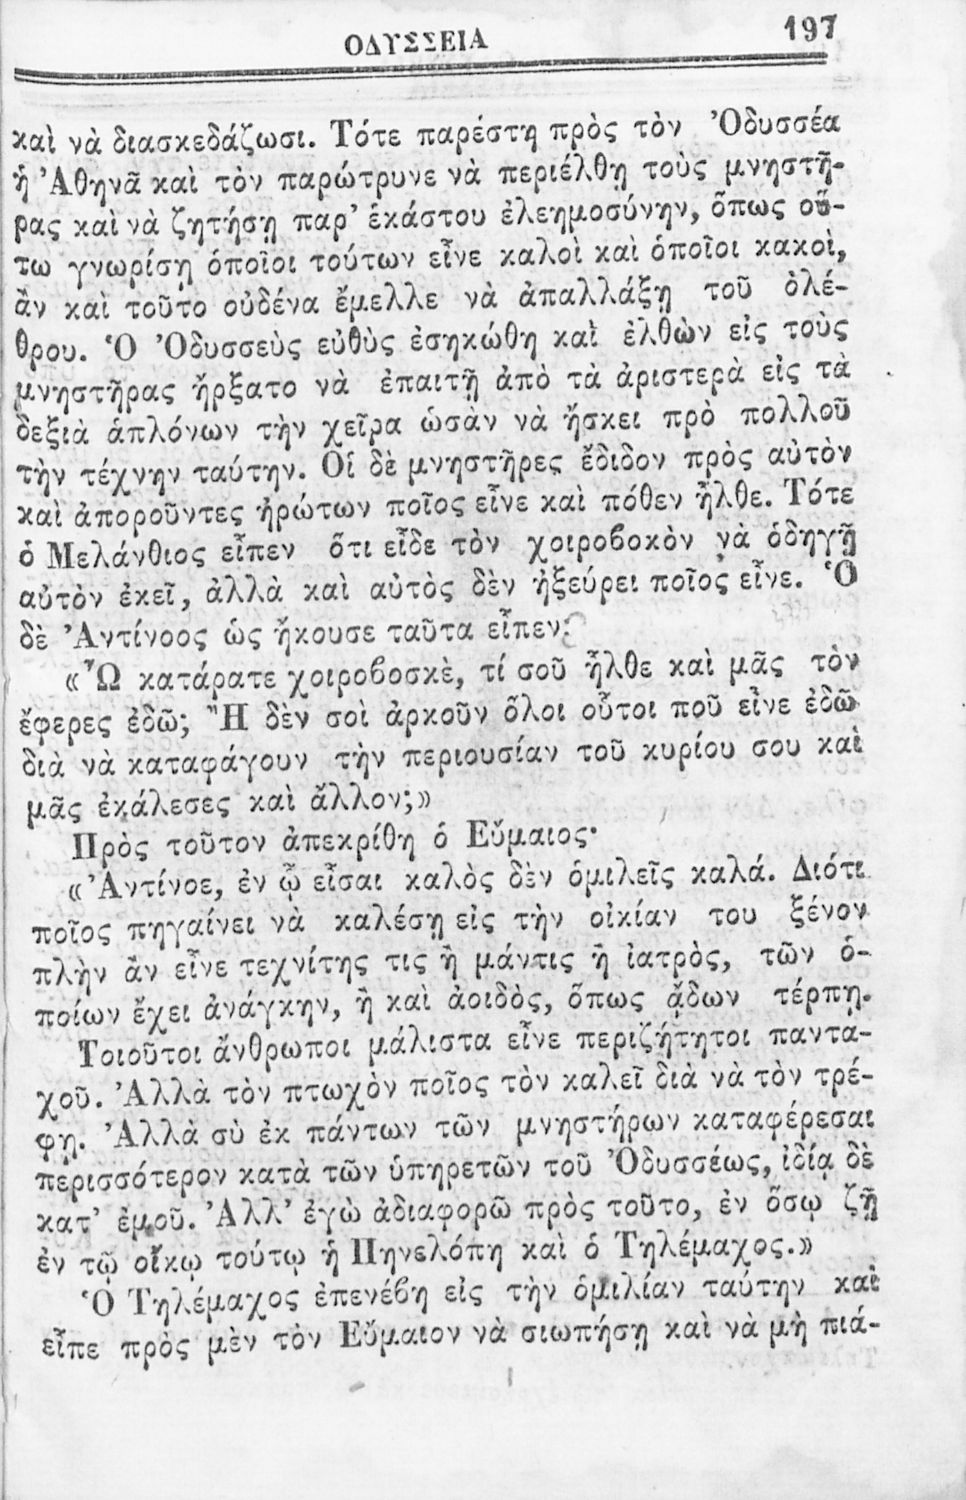 ΟΔΥΣΣΕΙΑ 197
καὶ νὰ διασκεδάζωσι. Τότε παρέστη πρὸς τὸν Ὀδυσσέα
ἡ Ἀθηνᾶ καὶ τὸν παρώτρυνε νὰ περιέλθῃ τοὺς μνηστῆ-
ρας καὶ νὰ ζητήσῃ παρ’ ἑκάστου ἐλεημοσύνην, ὅπως οὕ-
τω γνωρίσῃ ὁποῖοι τούτων εἶνε καλοὶ καὶ ὁποῖοι κακοὶ,
ἂν καὶ τοῦτο οὐδένα ἔμελλε νὰ ἀπαλλάξῃ τοῦ ὀλέ-
θρου. Ὁ Ὀδυσσεὺς εὐθὺς ἐσηκώθη καὶ ἐλθὼν εἰς τοὺς
μνηστῆρας ἤρξατο νὰ ἐπαιτῇ ἀπὸ τὰ ἀριστερὰ εἰς τὰ
δεξιὰ ἁπλόνων τὴν χεῖρα ὡσὰν νὰ ἤσκει πρὸ πολλοῦ
τὴν τέχνην ταύτην. Οἱ δὲ μνηστῆρες ἔδιδον πρὸς αὐτὸν
καὶ ἀποροῦντες ἠρώτων ποῖος εἶνε καὶ πόθεν ἦλθε. Τότε
ὁ Μελάνθιος εἶπεν ὅτι εἶδε τὸν χοιροβοκὸν νὰ ὁδηγῇ
αὐτὸν ἐκεῖ, ἀλλὰ καὶ αὐτὸς δὲν ἠξεύρει ποῖος εἶνε. Ὁ
δὲ Ἀντίνοος ὡς ἤκουσε ταῦτα εἶπεν·
«Ὦ κατάρατε χοιροβοσκὲ, τί σοῦ ἦλθε καὶ μᾶς τὸν
ἔφερες ἐδῶ; Ἢ δὲν σοὶ ἀρκοῦν ὅλοι οὗτοι ποῦ εἶνε ἐδῶ
διὰ νὰ καταφάγουν τὴν περιουσίαν τοῦ κυρίου σου καὶ
μᾶς ἐκάλεσες καὶ ἄλλον;»
Πρὸς τοῦτον ἀπεκρίθη ὁ Εὔμαιος·
«Ἀντίνοε, ἐν ᾧ εἶσαι καλὸς δὲν ὁμιλεῖς καλά. Διότι
ποῖος πηγαίνει νὰ καλέσῃ εἰς τὴν οἰκίαν του ξένον
πλὴν ἂν εἶνε τεχνίτης τις ἢ μάντις ἢ ἰατρὸς, τῶν ὁ-
ποίων ἔχει ἀνάγκην, ἢ καὶ ἀοιδὸς, ὅπως ᾄδων τέρπῃ.
Τοιοῦτοι ἄνθρωποι μάλιστα εἶνε περιζήτητοι παντα-
χοῦ. Ἀλλὰ τὸν πτωχὸν ποῖος τὸν καλεῖ διὰ νὰ τὸν τρέ-
φῃ. Ἀλλὰ σὺ ἐκ πάντων τῶν μνηστήρων καταφέρεσαι
περισσότερον κατὰ τῶν ὑπηρετῶν τοῦ Ὀδυσσέως, ἰδίᾳ δὲ
κατ’ ἐμοῦ. Ἀλλ’ ἐγὼ ἀδιαφορῶ πρὸς τοῦτο, ἐν ὅσῳ ζῇ
ἐν τῷ οἴκῳ τούτῳ ἡ Πηνελόπη καὶ ὁ Τηλέμαχος.»
Ὁ Τηλέμαχος ἐπενέβη εἰς τὴν ὁμιλίαν ταύτην καὶ
εἶπε πρὸς μὲν τὸν Εὔμαιον νὰ σιωπήσῃ καὶ νὰ μὴ πιά-